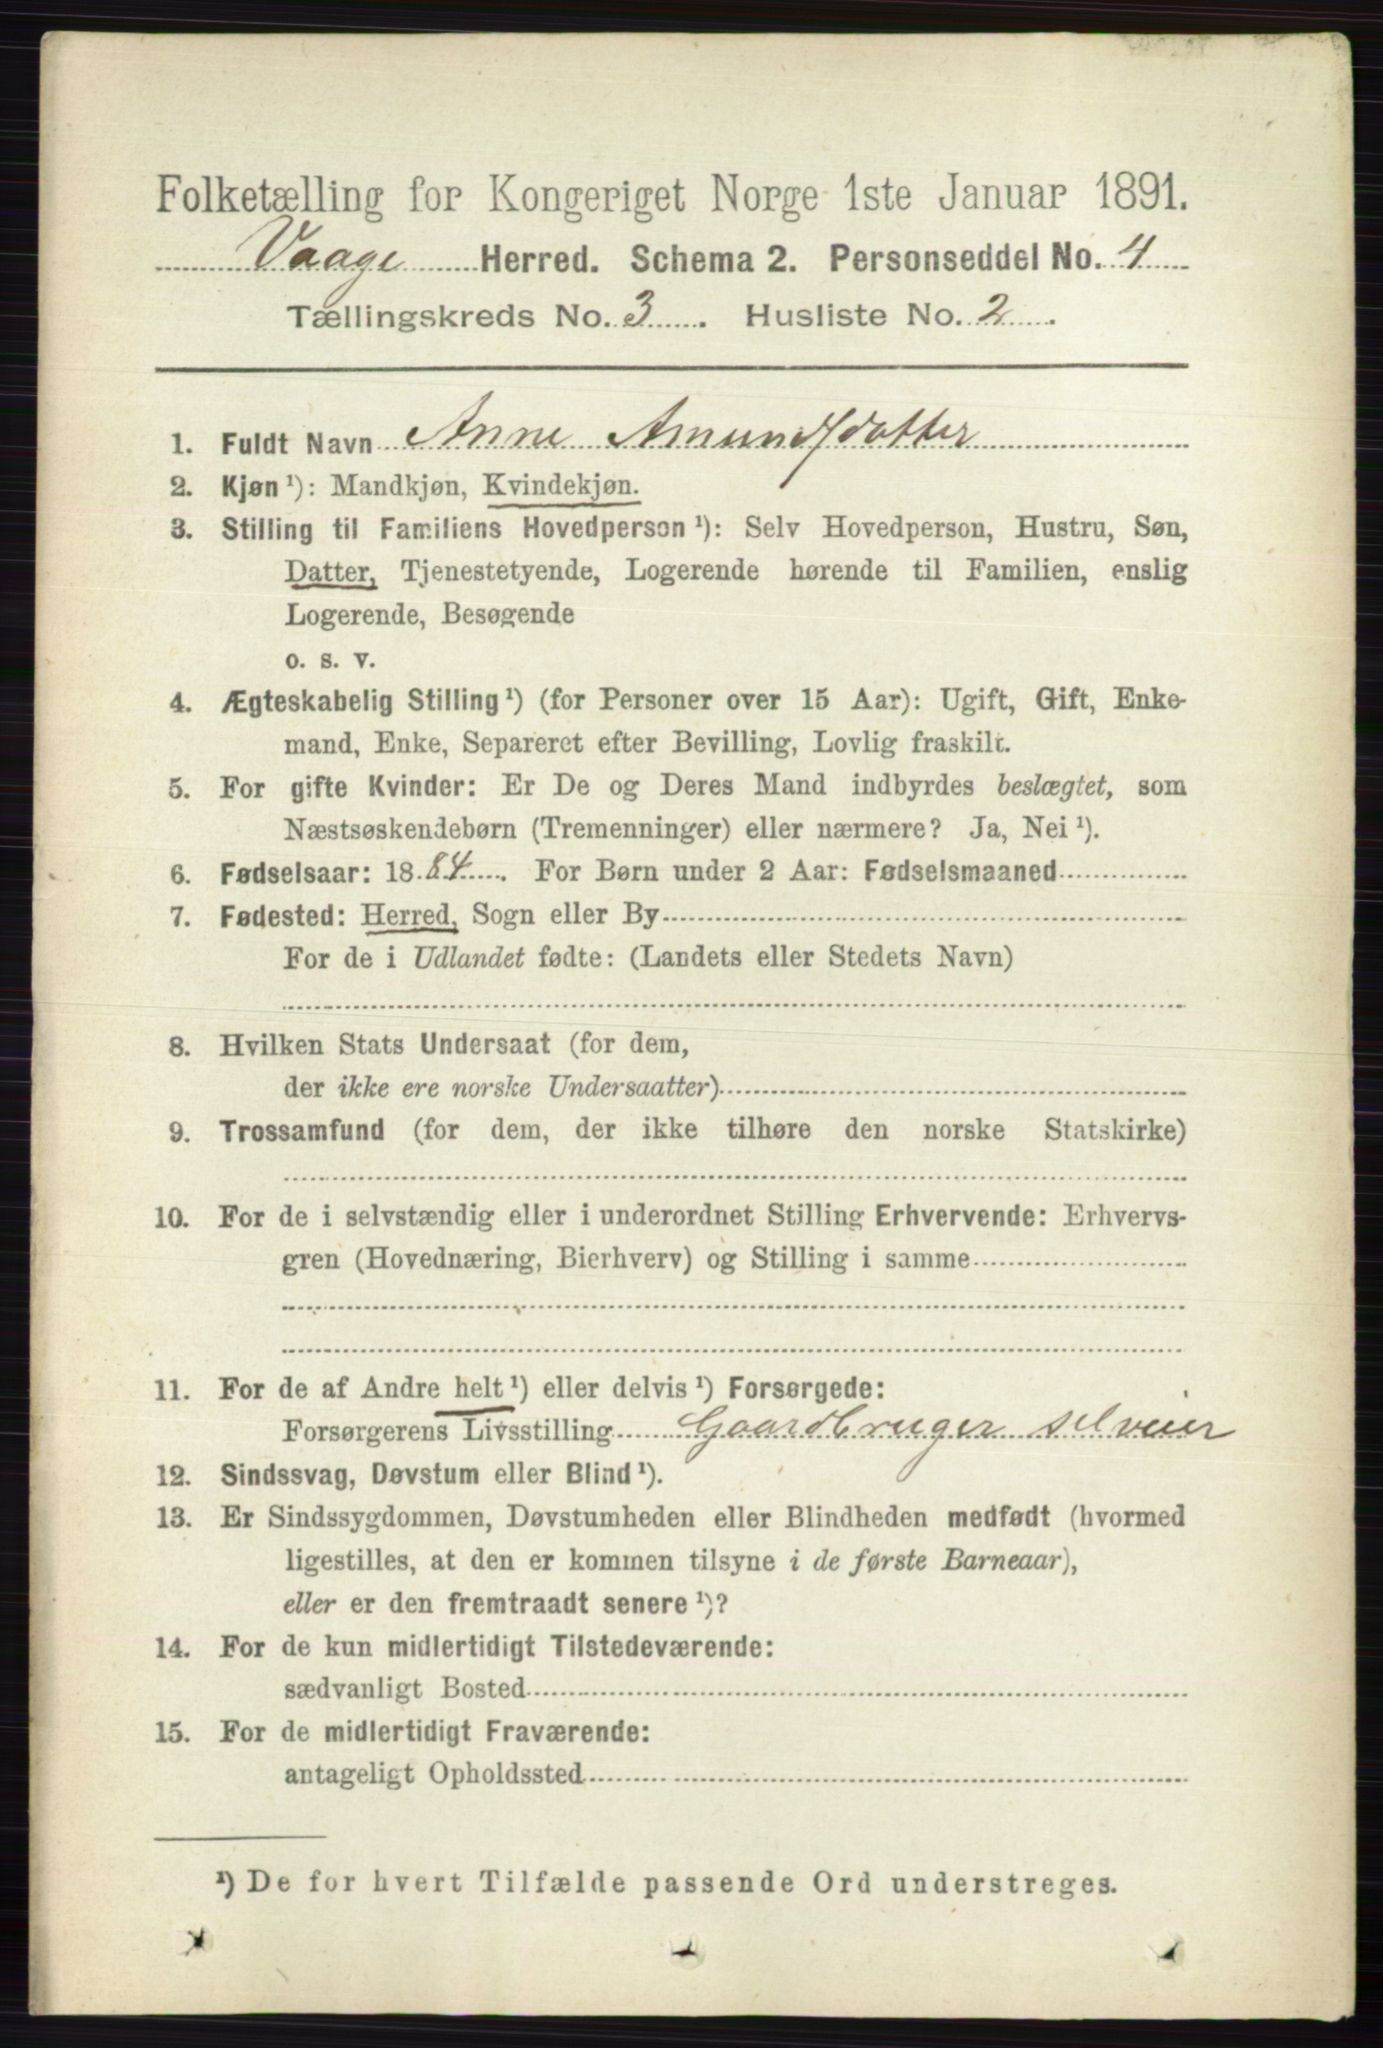 Folketælling for Kongeriget Norge 1ste Januar 1891.
Vaage Herred. Schema 2. Personseddel No. 4
Tællingskreds No. 3. Husliste No. 2.
1. Fuldt Navn Anne Amundsdatter
2. Kjøn ¹): Mandkjøn, Kvindekjøn.
3. Stilling til Familiens Hovedperson ¹): Selv Hovedperson, Hustru, Søn,
Datter, Tjenestetyende, Logerende hørende til Familien, enslig
Logerende, Besøgende
o. s. v.
4. Ægteskabelig Stilling ¹) (for Personer over 15 Aar): Ugift, Gift, Enke-
mand, Enke, Separeret efter Bevilling, Lovlig fraskilt.
5. For gifte Kvinder: Er De og Deres Mand indbyrdes beslægtet, som
Næstsøskendebørn (Tremenninger) eller nærmere? Ja, Nei ¹).
6. Fødselsaar: 1884. For Børn under 2 Aar: Fødselsmaaned
7. Fødested: Herred, Sogn eller By
For de i Udlandet fødte: (Landets eller Stedets Navn)
8. Hvilken Stats Undersaat (for dem,
der ikke ere norske Undersaatter)
9. Trossamfund (for dem, der ikke tilhøre den norske Statskirke)
10. For de i selvstændig eller i underordnet Stilling Erhvervende: Erhvervs-
gren (Hovednæring, Bierhverv) og Stilling i samme
11. For de af Andre helt ¹) eller delvis ¹) Forsørgede:
Forsørgerens Livsstilling Gaardbruger selveier
12. Sindssvag, Døvstum eller Blind ¹).
13. Er Sindssygdommen, Døvstumheden eller Blindheden medfødt (hvormed
ligestilles, at den er kommen tilsyne i de første Barneaar),
eller er den fremtraadt senere ¹)?
14. For de kun midlertidigt Tilstedeværende:
sædvanligt Bosted
15. For de midlertidigt Fraværende:
antageligt Opholdssted
¹) De for hvert Tilfælde passende Ord understreges.